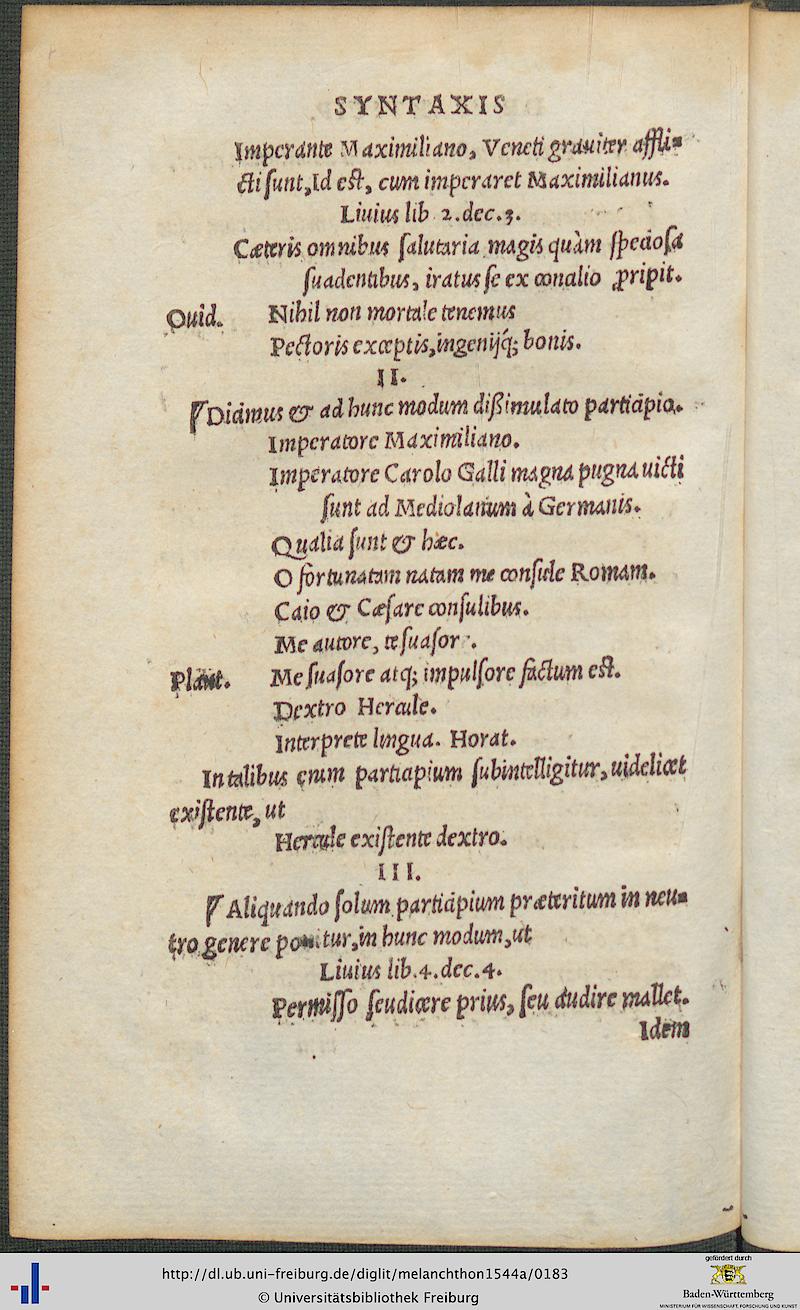 SYNTAXIS
Imperante Maximiliano, Veneti grauiter affli-
cti sunt, Id est, cum imperaret Maximilianus.
Liuius lib 2. dec. 3.
Cæteris omnibus salutaria magis quàm speciosa
suadentibus, iratus se ex consilio ꝓripit.
Ouid. Nihil non mortale tenemus
Pectoris exceptis, ingenijq́; bonis.
II.
Dicimus & ad hunc modum dißimulato participio.
Imperatore Maximiliano.
Imperatore Carolo Galli magna pugna uicti
sunt ad Mediolanum à Germanis.
Qualia sunt & hæc.
O fortunatam natam me consule Romam.
Caio & Cæsare consulibus.
Me autore, te suasor .
Plaut. Me suasore atq; impulsore factum est.
Dextro Hercule.
Interprete lingua. Horat.
In talibus enim participium subintelligitur, uidelicet
existente, ut
Hercule existente dextro.
III.
Aliquando solum participium præteritum in neu-
tro genere ponitur, in hunc modum, ut
Liuius lib. 4. dec. 4.
Permisso seu dicere prius, seu audire mallet.
Idem
http://dl.ub.uni-freiburg.de/diglit/melanchthon1544a/0183
© Universitätsbibliothek Freiburg
gefördert durch
Baden-Württemberg
MINISTERIUM FÜR WISSENSCHAFT, FORSCHUNG UND KUNST